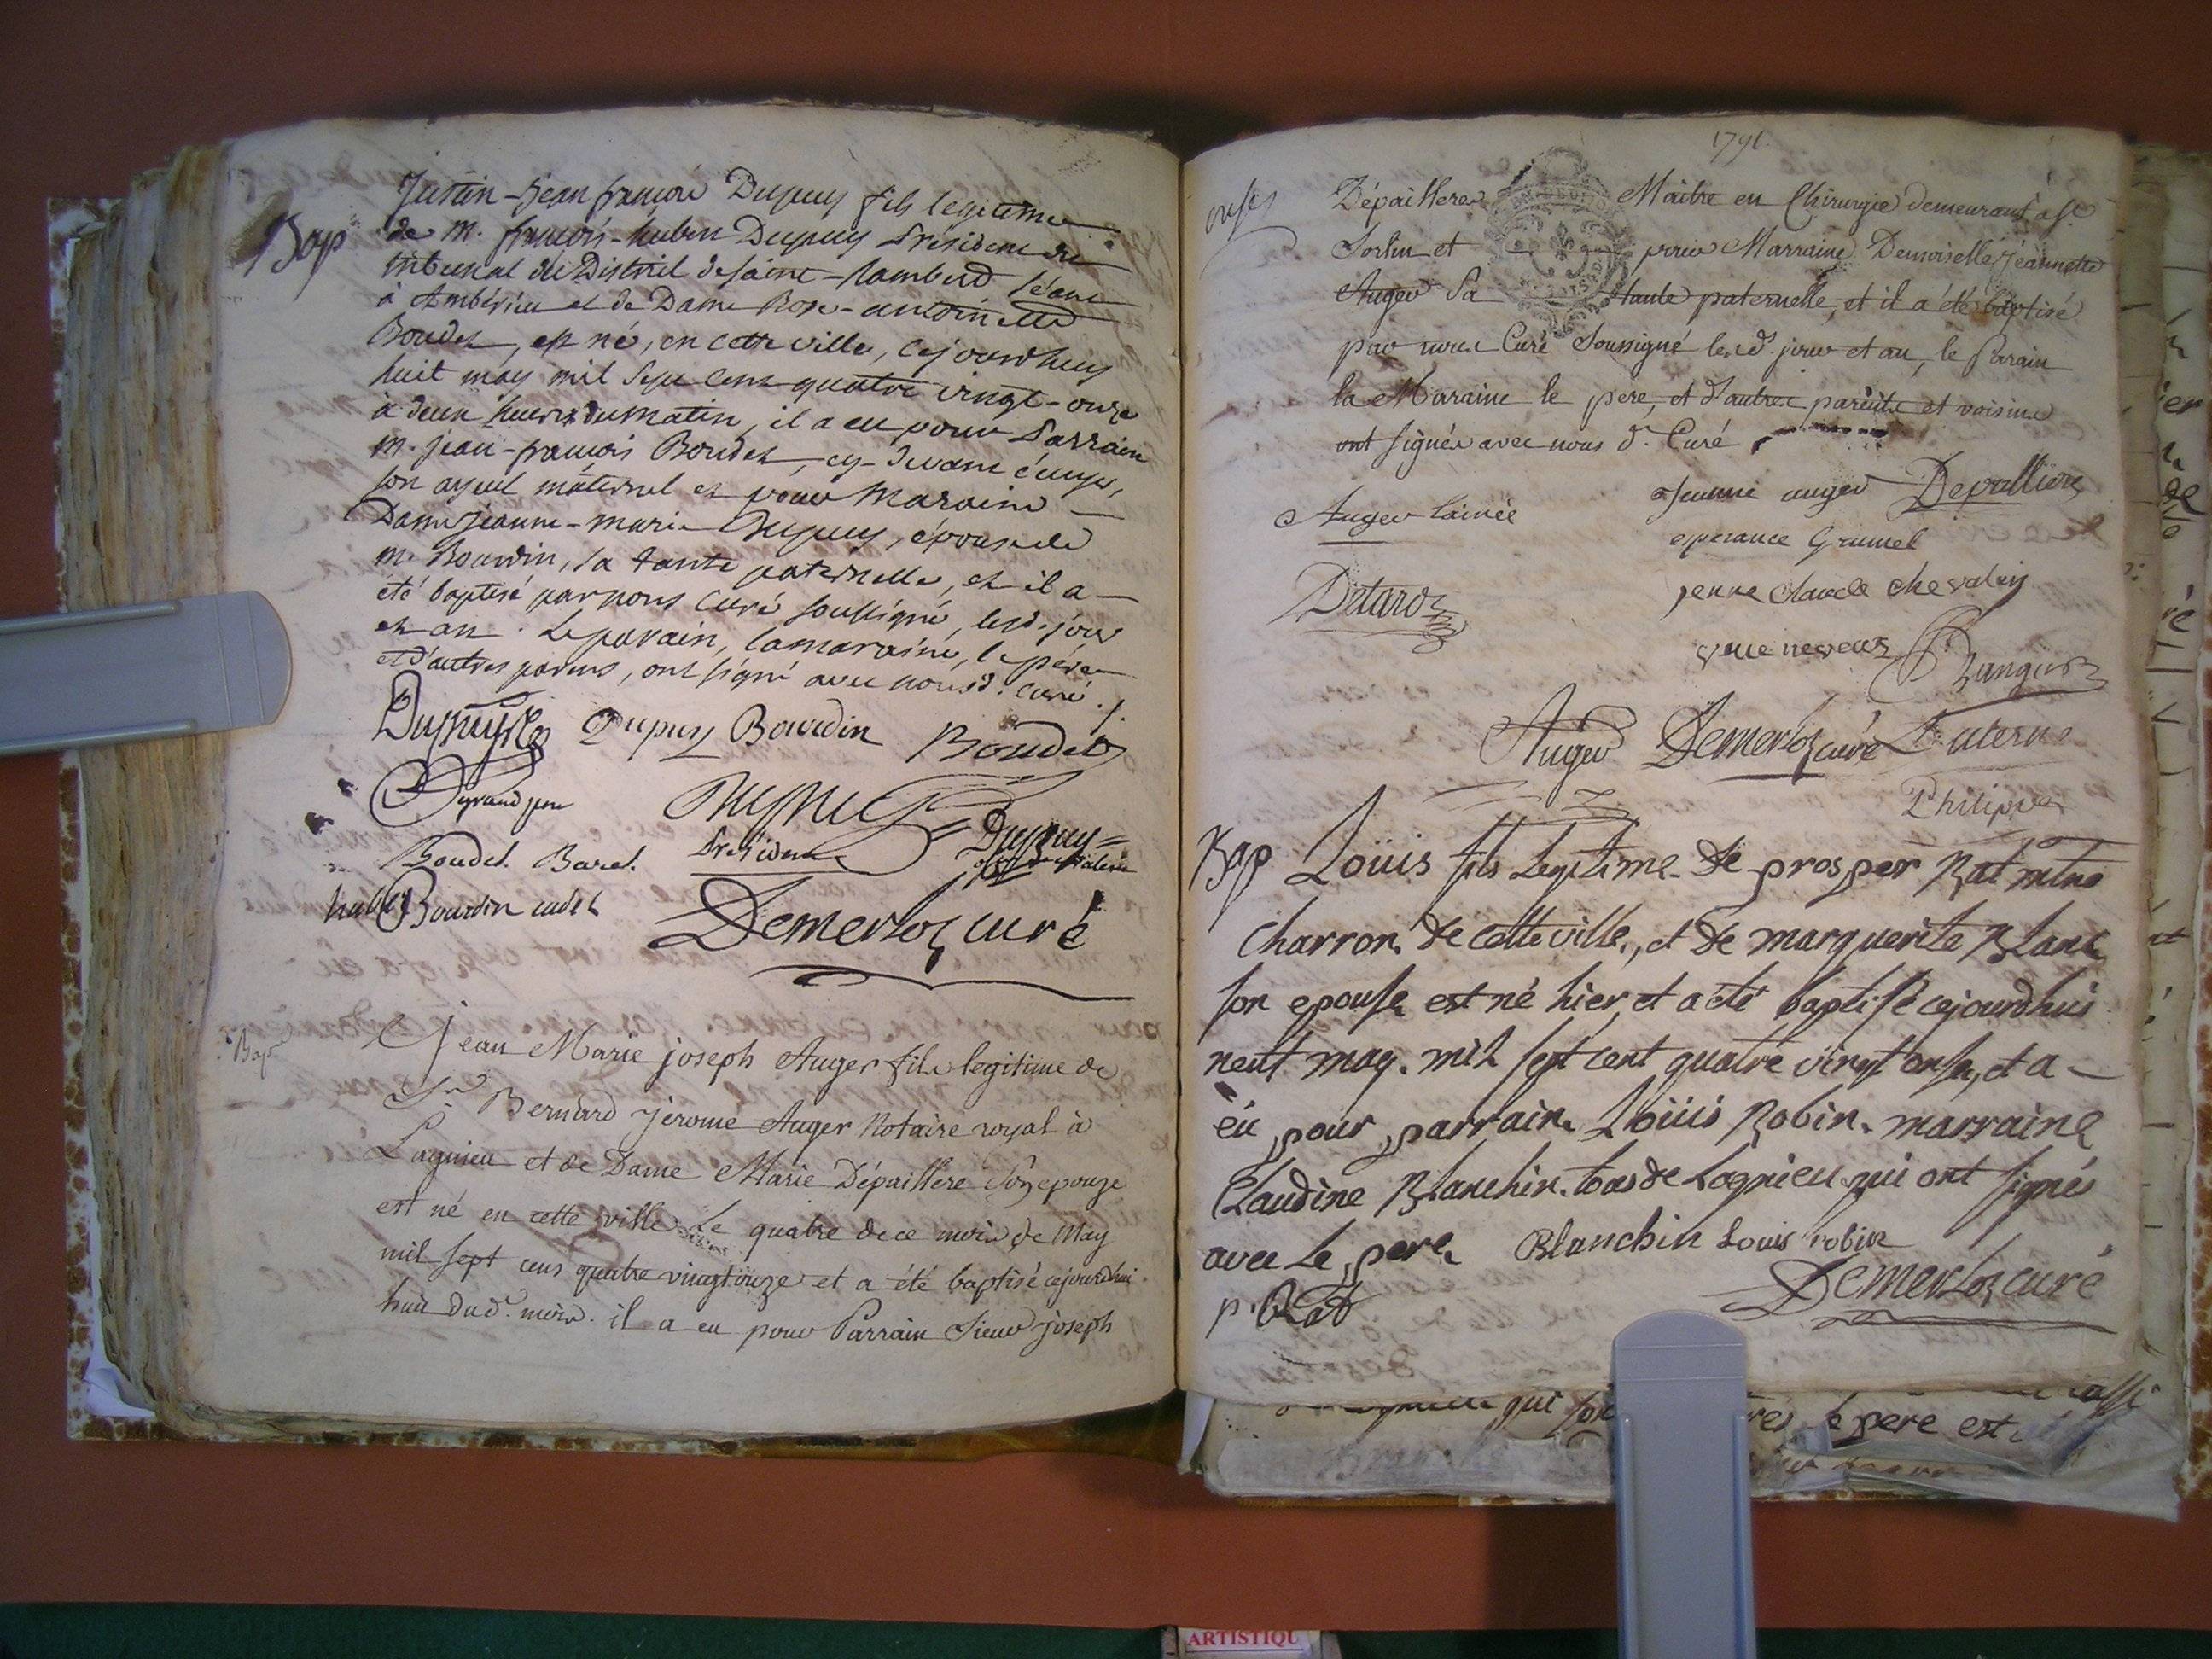 Bap
Justin-jean françois Dupuy fils legitime
de M. françois-huben Dupuy Président du
tribunal du District de saint-Rambert séant
à Ambérieu et de Dame Rose-antoinette
Boudet, est né, en cette ville, cejourdhuy
huit may mil sept cent quatre vingt-onze
à deux heures du matin, il a eu pour Parrain
M. jean-françois Boudet, cy-devant écuyer,
son ayeul maternel et pour Maraine
Dame jeanne-marie Dupuy, épouse de
M. Bourdin, sa tante paternelle, et il a
été baptisé par nous curé soussigné, lesd. jour
et an. Le parain, la maraine, le père
et d'autres parens, ont signé avec nous d. curé ./.
Dupuy Bourdin Boudet
grand pere
Dupuy
Président
Dupuy
Boudet Baret.
Bourdin cadet
Demerloz curé
Bap
jean Marie joseph Auger fils legitime de
Sr Bernard jerome Auger Notaire royal à
Lagnieu et de Dame Marie Dépaillere son epouze
est né en cette ville le quatre de ce mois de May
mil sept cens quatre vingt onze et a été baptisé cejourdhui
huit dud. mois. il a eu pour Parrain Sieur joseph
1791.
Dépaillere Maitre en Chirurgie demeurant à St
Sorlin et pour Marraine Demoiselle jeannette
Auger Sa tante paternelle, et il a été baptisé
par nous Curé Soussigné lesd. jour et an, le Parain
la Maraine le pere, et d'autres parents et voisins
ont signés avec nous d. Curé
Auger lainée jeanne auger Depalliere
esperance Grumel
Detaroz
Auger Demerloz curé
Philippe
Bap Loüis fils Legitime de prosper Rat mtre
Charron de cette ville, et de marguerite Blanc
son epouse est né hier, et a été baptisé cejourdhui
neuf may. mil sept cent quatre vingt onse, et a
eü pour parrain Loüis Robin. marraine
Claudine Blanchin. tous de Lagnieu qui ont signés
avec Le pere. Blanchin Louis robin
p. Rat Demerloz curé
qui
le pere est
ARTISTIQU